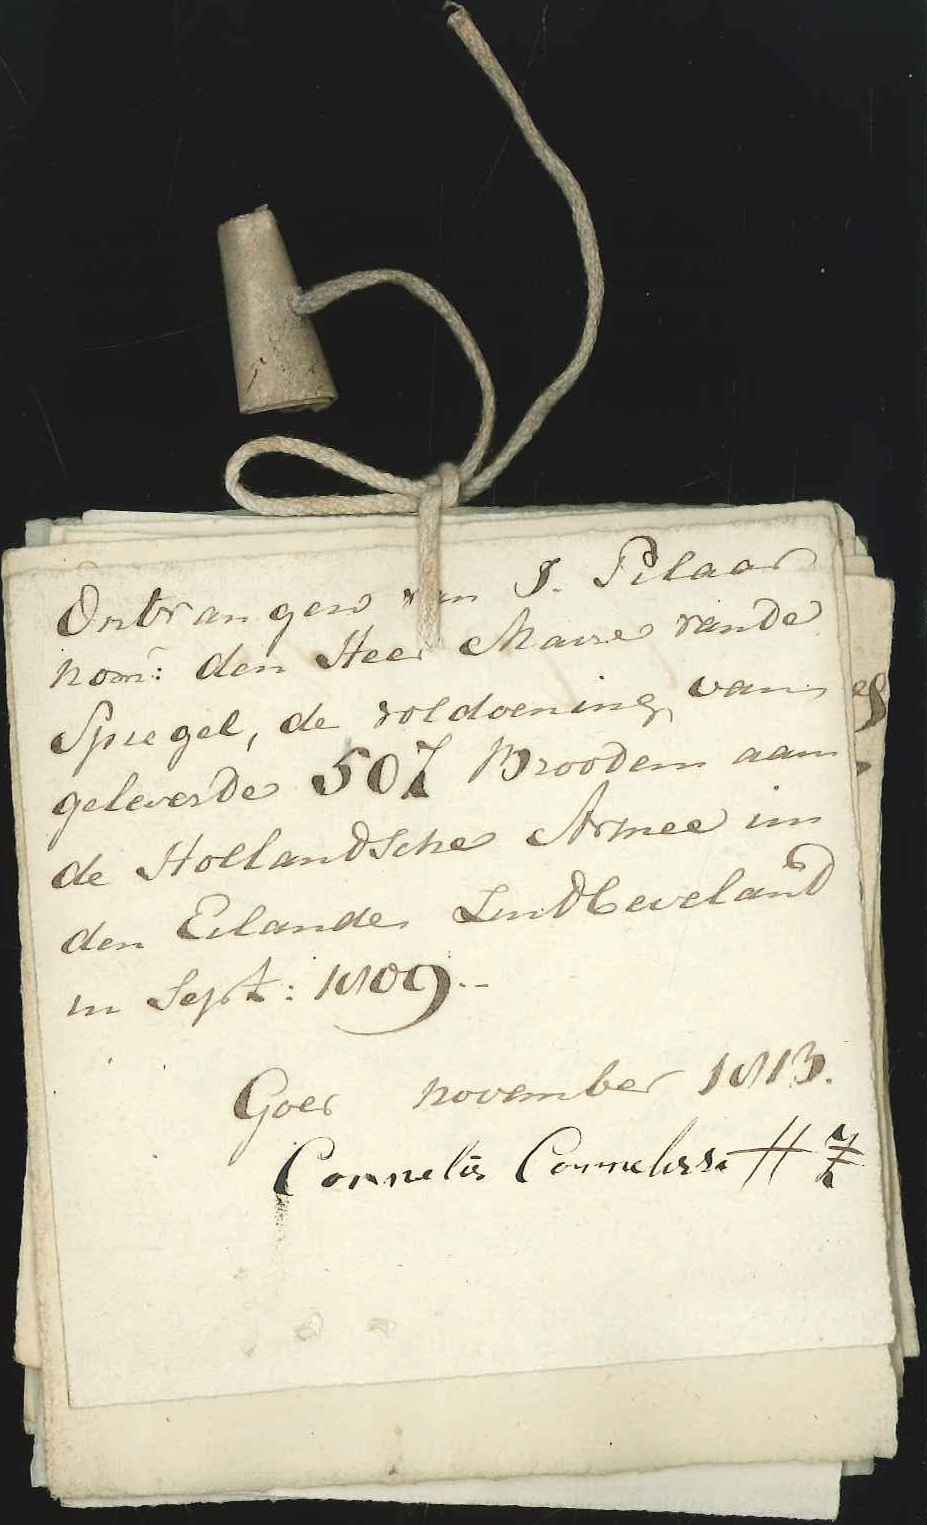 Ontvangen van J. Pilaar
nom: den Heer Maire vande
Spiegel, de voldoening van
geleverde 507 Brooden aan
de Hollandsche Armee in
den Eilande Zuidbeveland
in Sept: 1809.
Goes november 1813.
Cornelis Cornelisse